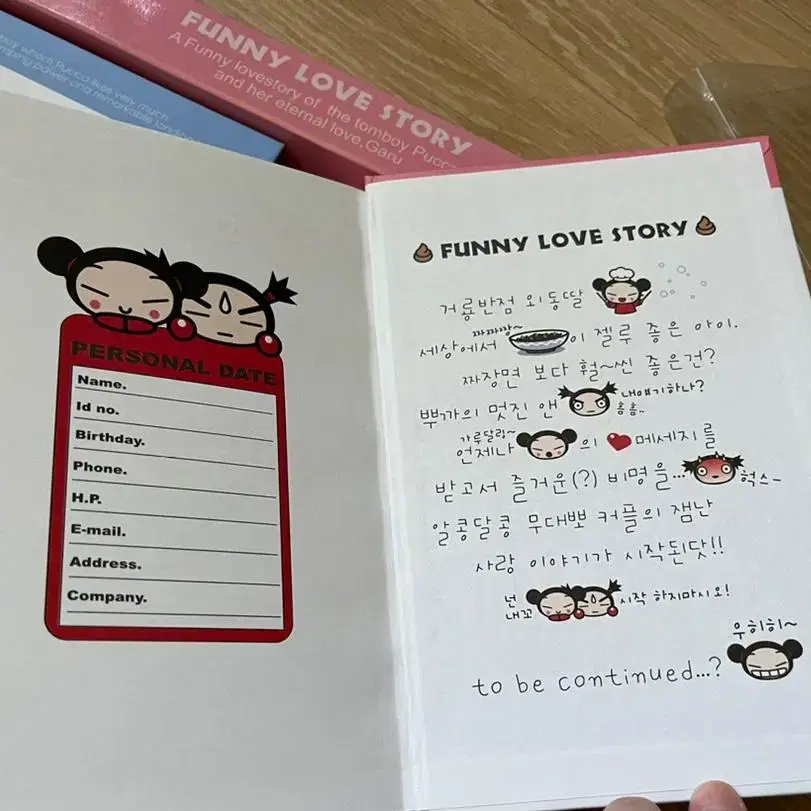 FUNNY LOVE STORY
A Funny lovestory of the tomboy Pucca
and her eternal love.Garu
whom Pucca likes very much.
power and remarkable
PERSONAL DATE
Name.
Id no.
Birthday.
Phone.
H.P.
E-mail.
Address.
Company.
FUNNY LOVE STORY
거룡반점 외동딸
짜짜짱~
세상에서 이 젤루 좋은 아이.
짜장면 보다 훨~씬 좋은건?
뿌까의 멋진 앤 내얘기하나?
흠흠..
가루달링~
언제나 의 메세지를
받고서 즐거운(?) 비명을... 헉스~
알콩달콩 무대뽀 커플의 잼난
사랑 이야기가 시작된닷!!
넌 내꼬 시작 하지마시오!
우히히~
to be continued...?